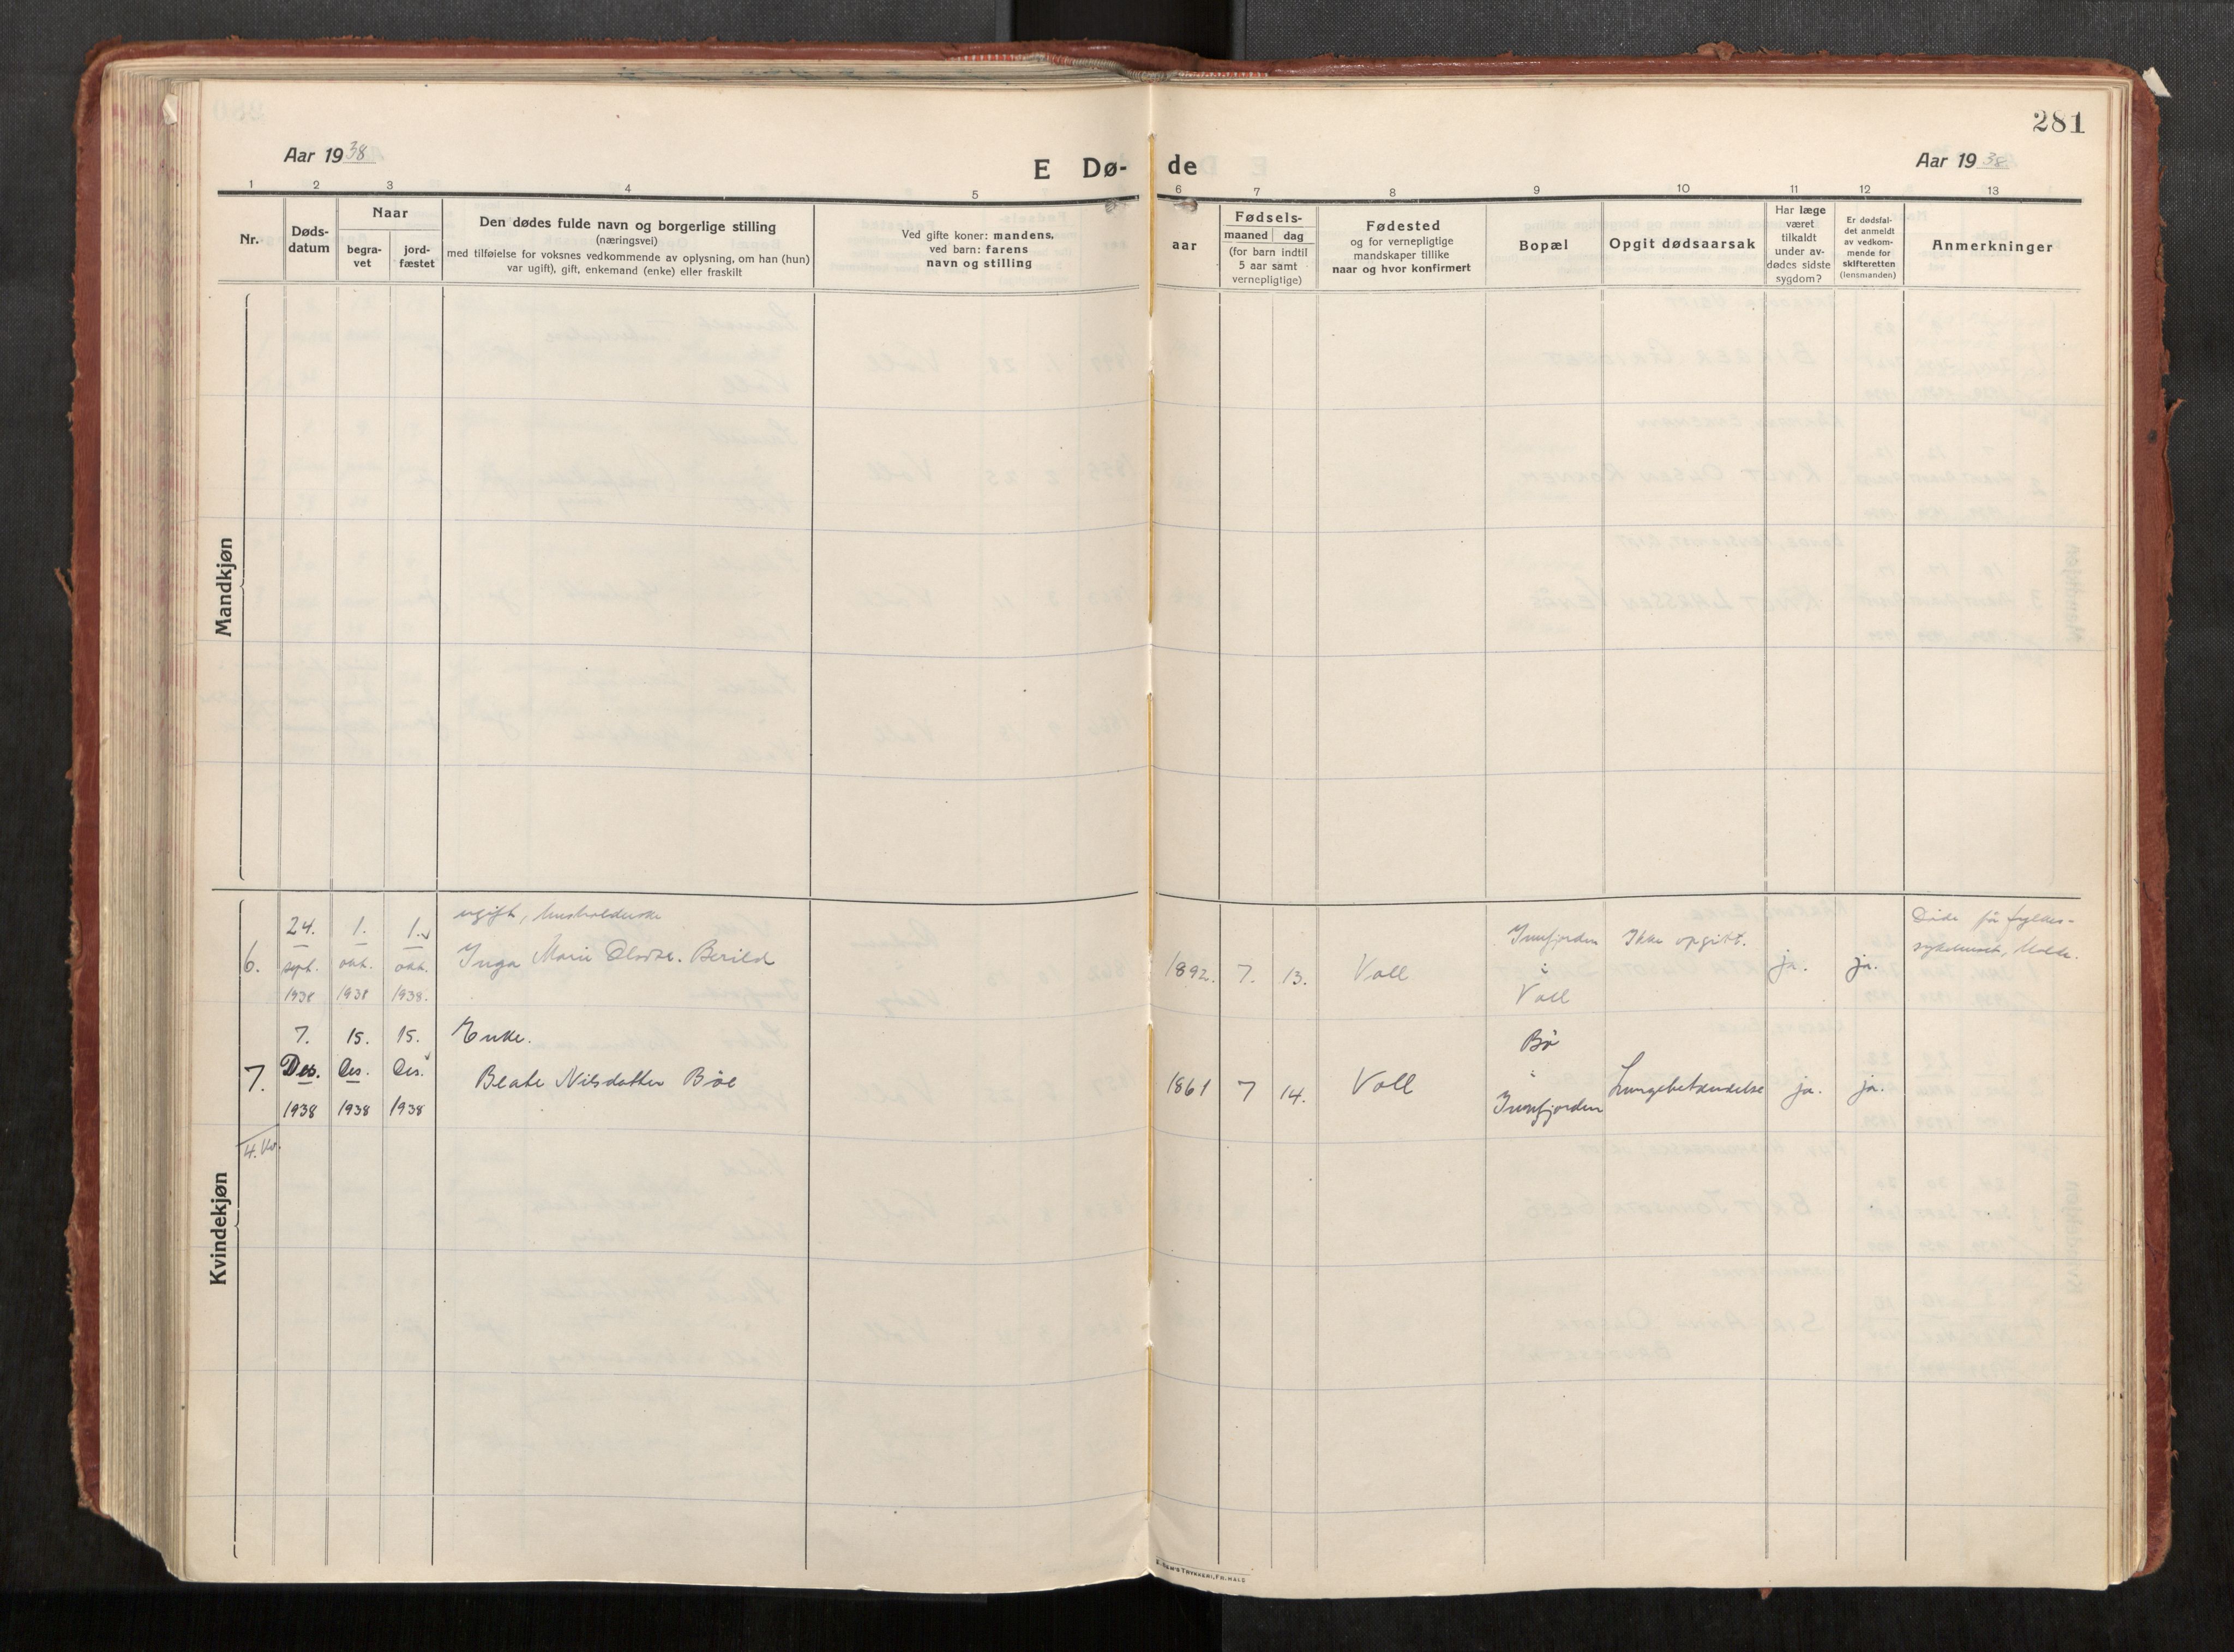 281
Aar 1938
E Dø-
de
Aar 1938
1 2 3 4 5 6 7 8 9 10 11 12 13
Nr.
Døds-
datum
Naar
begra-
vet
jord-
fæstet
Den dødes fulde navn og borgerlige stilling
(næringsvei)
med tilføielse for voksnes vedkommende av oplysning, om han (hun)
var ugift), gift, enkemand (enke) eller fraskilt
Ved gifte koner: mandens,
ved barn: farens
navn og stilling
aar
Fødsels-
maaned dag
(for barn indtil
5 aar samt
vernepligtige)
Fødested
og for vernepligtige
mandskaper tillike
naar og hvor konfirmert
Bopæl
Opgit dødsaarsak
Har læge
været
tilkaldt
under av-
dødes sidste
sygdom?
Er dødsfal-
det anmeldt
av vedkom-
mende for
skifteretten
(lensmanden)
Anmerkninger
Mandkjøn
Kvindekjøn
6.
24.
sept.
1938
1.
okt.
1938
1.
okt.
1938.
ugift, husholderske
Inga Marie Olavsr. Berild
1892. 7. 13.
Voll
Innfjorden
i
Voll
Ikke opgitt.
ja.
ja.
Døde på fylkes-
sykehuset, Molde.
7.
7.
Des.
1938
15.
Des.
1938
15.
Des.
1938
Enke.
Beate Nilsdatter Bøe
1861 7 14.
Voll
Bø
i
Innfjorden
Lungebetændelse
ja.
ja.
4. kv.